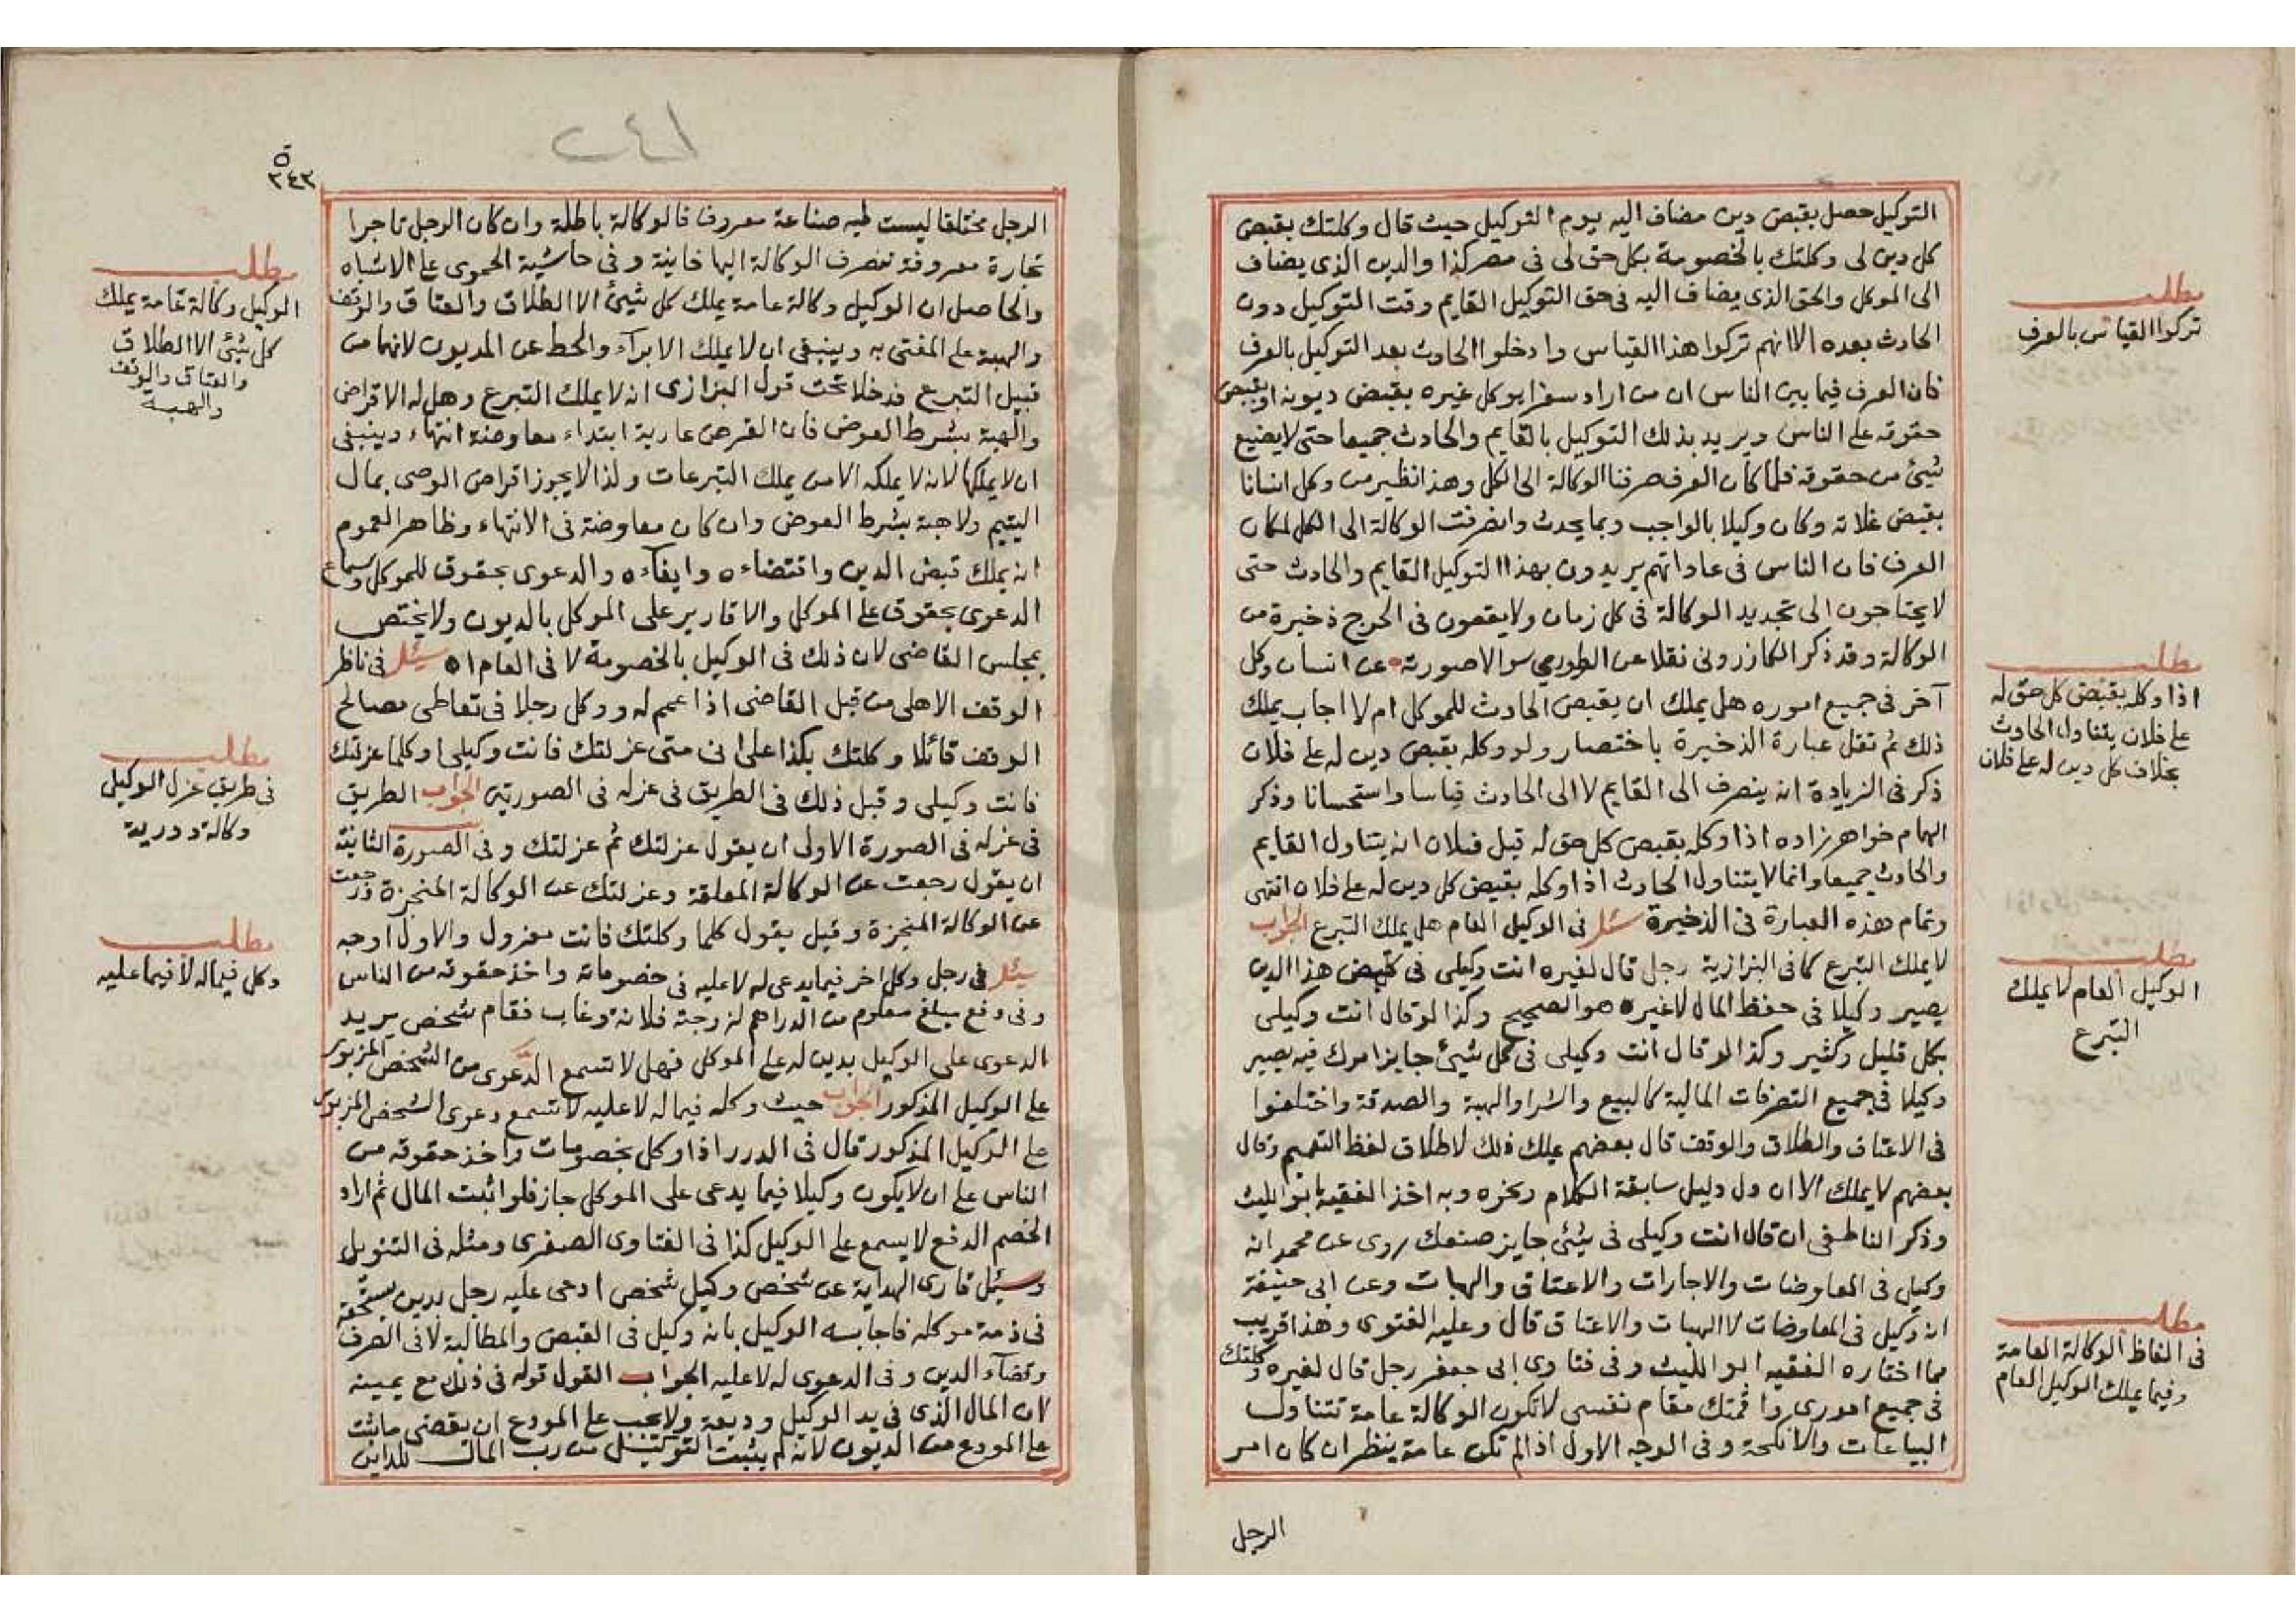 التوكيل حصل بقبض دين مضاف اليه يوم التوكيل حيث قال وكلتك بقبض
كل دين لى وكلتك بالخصومة بكل حق لى فى مصر كذا والدين الذى يضاف
الى الموكل والحق الذى يضاف اليه فى حق التوكيل القايم وقت التوكيل دون
الحادث بعده الا انهم تركوا هذا القياس وادخلوا الحادث بعد التوكيل بالعرف
فان العرف فيما بين الناس ان من اراد سفرا يوكل غيره بقبض ديونه او بقبض
حقوقه على الناس ويريد بذلك التوكيل بالقايم والحادث جميعا حتى لا يضيع
شيئ من حقوقه فلما كان العرف صرفنا الوكالة الى الكل وهذا نظير من وكل انسانا
بقبض غلاته وكان وكيلا بالواجب وبما يحدث وانصرفت الوكالة الى الكل لمكان
العرف فان الناس فى عاداتهم يريدون بهذا التوكيل القايم والحادث حتى
لا يحتاجون الى تجديد الوكالة فى كل زمان ولا يقعون فى الحرج ذخيرة من
الوكالة وقد ذكر الكازرونى نقلا عن الطورى سوالا صورته عن انسان وكل
آخر فى جميع اموره هل يملك ان يقبض الحادث للموكل ام لا اجاب يملك
ذلك ثم نقل عبارة الذخيرة باختصار ولو وكله بقبض دين له على فلان
ذكر فى الزيادة انه ينصرف الى القايم لا الى الحادث قياسا واستحسانا وذكر
الهمام خواهرزاده اذا وكله بقبض كل حق له قبل فلان انه يتناول القايم
والحادث جميعا وانما لا يتناول الحادث اذا وكله بقبض كل دين له على فلان انتهى
وتمام هذه العبارة فى الذخيرة سئل فى الوكيل العام هل يملك التبرع الجواب
لا يملك التبرع كما فى البزازية رجل قال لغيره انت وكيلى فى قبض هذا الدين
يصير وكيلا فى حفظ المال لا غيره هو الصحيح وكذا لو قال انت وكيلى
بكل قليل وكثير وكذا لو قال انت وكيلى فى كل شيئ جايز امرك فيه يصير
وكيلا فى جميع التصرفات المالية كالبيع والشرا والهبة والصدقة واختلفوا
فى الاعتاق والطلاق والوقف قال بعضهم يملك ذلك لاطلاق لفظ التعميم وقال
بعضهم لا يملك الا ان دل دليل سابقة الكلام ونحوه وبه اخذ الفقيه ابو الليث
وذكر الناطفى ان قال انت وكيلى فى شيئ جايز صنعك روى عن محمد انه
وكيل فى المعاوضات والاجارات والاعتاق والهبات وعن ابى حنيفة
انه وكيل فى المعاوضات لا الهبات والاعتاق قال وعليه الفتوى وهذا قريب
مما اختاره الفقيه ابو الليث وفى فتاوى ابى جعفر رجل قال لغيره وكلتك
فى جميع امورى واقمتك مقام نفسى لا تكون الوكالة عامة تتناول
البياعات والانكحة وفى الوجه الاول اذا لم تكن عامة ينظر ان كان امر
الرجل
مطلب
تركوا القياس بالعرف
مطلب
اذا وكله بقبض كل حق له
على فلان يتناول الحادث
بخلاف كل دين له على فلان
مطلب
الوكيل العام لا يملك
التبرع
مطلب
فى الفاظ الوكالة العامة
وفيما يملك الوكيل العام
٢٤١
٢٤٣
الرجل مختلفا ليست له صناعة معروفة فالوكالة باطلة وان كان الرجل تاجرا
تجارة معروفة تنصرف الوكالة اليها خانية وفى حاشية الحموى على الاشباه
والحاصل ان الوكيل وكالة عامة يملك كل شيئ الا الطلاق والعتاق والوقف
والهبة على المفتى به وينبغى ان لا يملك الابرآء والحط عن المديون لانهما من
قبيل التبرع فدخلا تحت قول البزازى انه لا يملك التبرع وهل له الاقراض
والهبة بشرط العوض فان القرض عارية ابتداء معاوضة انتهاء وينبغى
ان لا يملكها لانه لا يملكه الا من يملك التبرعات ولذا لا يجوز اقراض الوصى بمال
اليتيم ولا هبة بشرط العوض وان كان معاوضة فى الانتهاء وظاهر العموم
انه يملك قبض الدين واقتضاءه وايفآءه والدعوى بحقوق للموكل وسماع
الدعوى بحقوق على الموكل والاقارير على الموكل بالديون ولا يختص
بمجلس القاضى لان ذلك فى الوكيل بالخصومة لا فى العام اه سئل فى ناظر
الوقف الاهلى من قبل القاضى اذا عمم له ووكل رجلا فى تعاطى مصالح
الوقف قائلا وكلتك بكذا على انى متى عزلتك فانت وكيلى او كلما عزلتك
فانت وكيلى وقبل ذلك فى الطريق فى عزله فى الصورتين الجواب الطريق
فى عزله فى الصورة الاولى ان يقول عزلتك ثم عزلتك وفى الصورة الثانية
ان يقول رجعت عن الوكالة المعلقة وعزلتك عن الوكالة المنجزة
عن الوكالة المنجزة وقيل يقول كلما وكلتك فانت معزول والاول اوجه
سئل فى رجل وكل اخر فيما يدعى له لا عليه فى خصوماته واخذ حقوقه من الناس
وفى دفع مبلغ معلوم من الدراهم لزوجته فلانة وغاب فقام شخص يريد
الدعوى على الوكيل بدين له على الموكل فهل لا تسمع الدعوى من الشخص المزبور
على الوكيل المذكور الجواب حيث وكله فيما له لا عليه لا تسمع دعوى الشخص المزبور
على الوكيل المذكور قال فى الدرر اذا وكل بخصومات واخذ حقوقه من
الناس على ان لا يكون وكيلا فيما يدعى على الموكل جاز فلو اثبت المال ثم اراد
الخصم الدفع لا يسمع على الوكيل كذا فى الفتاوى الصغرى ومثله فى التنوير
وسئل قارى الهداية عن شخص وكيل شخص ادعى عليه رجل بدين يستحقه
فى ذمة موكله فاجابه الوكيل بانه وكيل فى القبض والمطالبة لا فى الصرف
وقضآء الدين وفى الدعوى له لا عليه الجواب القول قوله فى ذلك مع يمينه
لان المال الذى فى يد الوكيل وديعة ولا يجب على المودع ان يقضى ما ثبت
على المودع من الديون لانه لم يثبت التوكيل من رب المال للداين
مطلب
الوكيل وكالة عامة يملك
كل شيئ الا الطلاق
والعتاق والوقف
والهبة
مطلب
فى طريق عزل الوكيل
وكالة دورية
مطلب
وكل فيما له لا فيما عليه